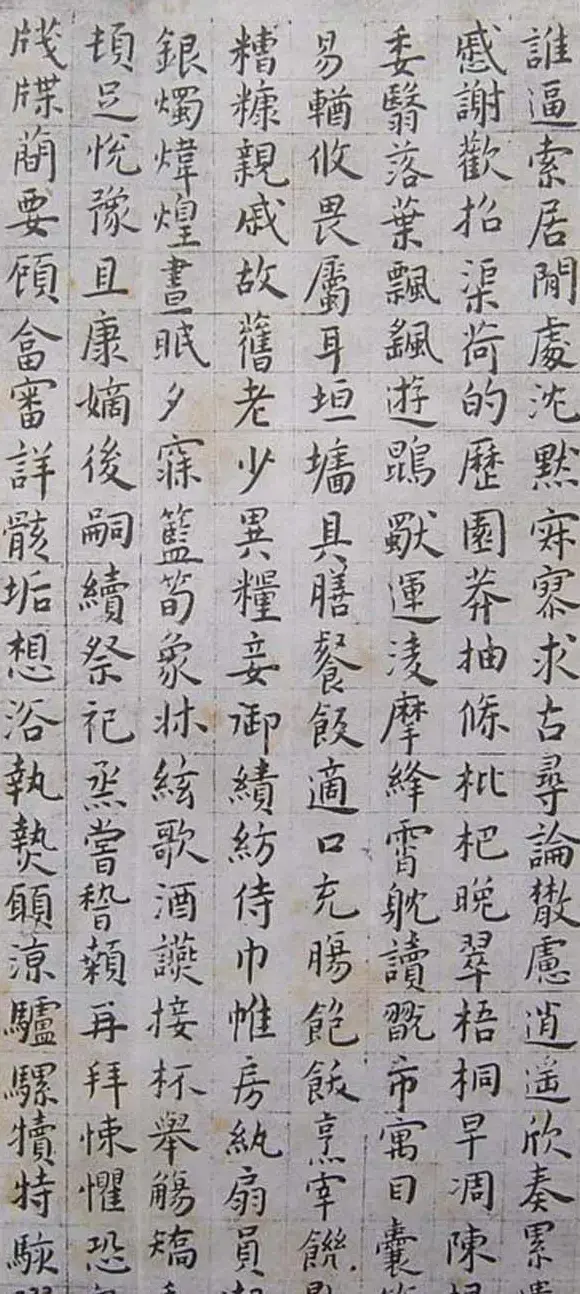 誰逼索居閒處沈默寂寥求古尋論散慮逍遙欣奏累
慼謝歡招渠荷的歷園莽抽條枇杷晚翠梧桐早凋陳
委翳落葉飄颻遊鵾獸運淩摩絳霄耽讀翫市寓目囊
易輶攸畏屬耳垣墻具膳餐飯適口充腸飽飫烹宰饑
糟糠親戚故舊老少異糧妾御績紡侍巾帷房紈扇員
銀燭煒煌晝眠夕寐籃筍象牀絃歌酒讌接杯舉觴矯
頓足悅豫且康嫡後嗣續祭祀烝嘗稽顙再拜悚懼恐
牋牒蕑要顧答審詳骸垢想浴執熱願涼驢騾犢特駭